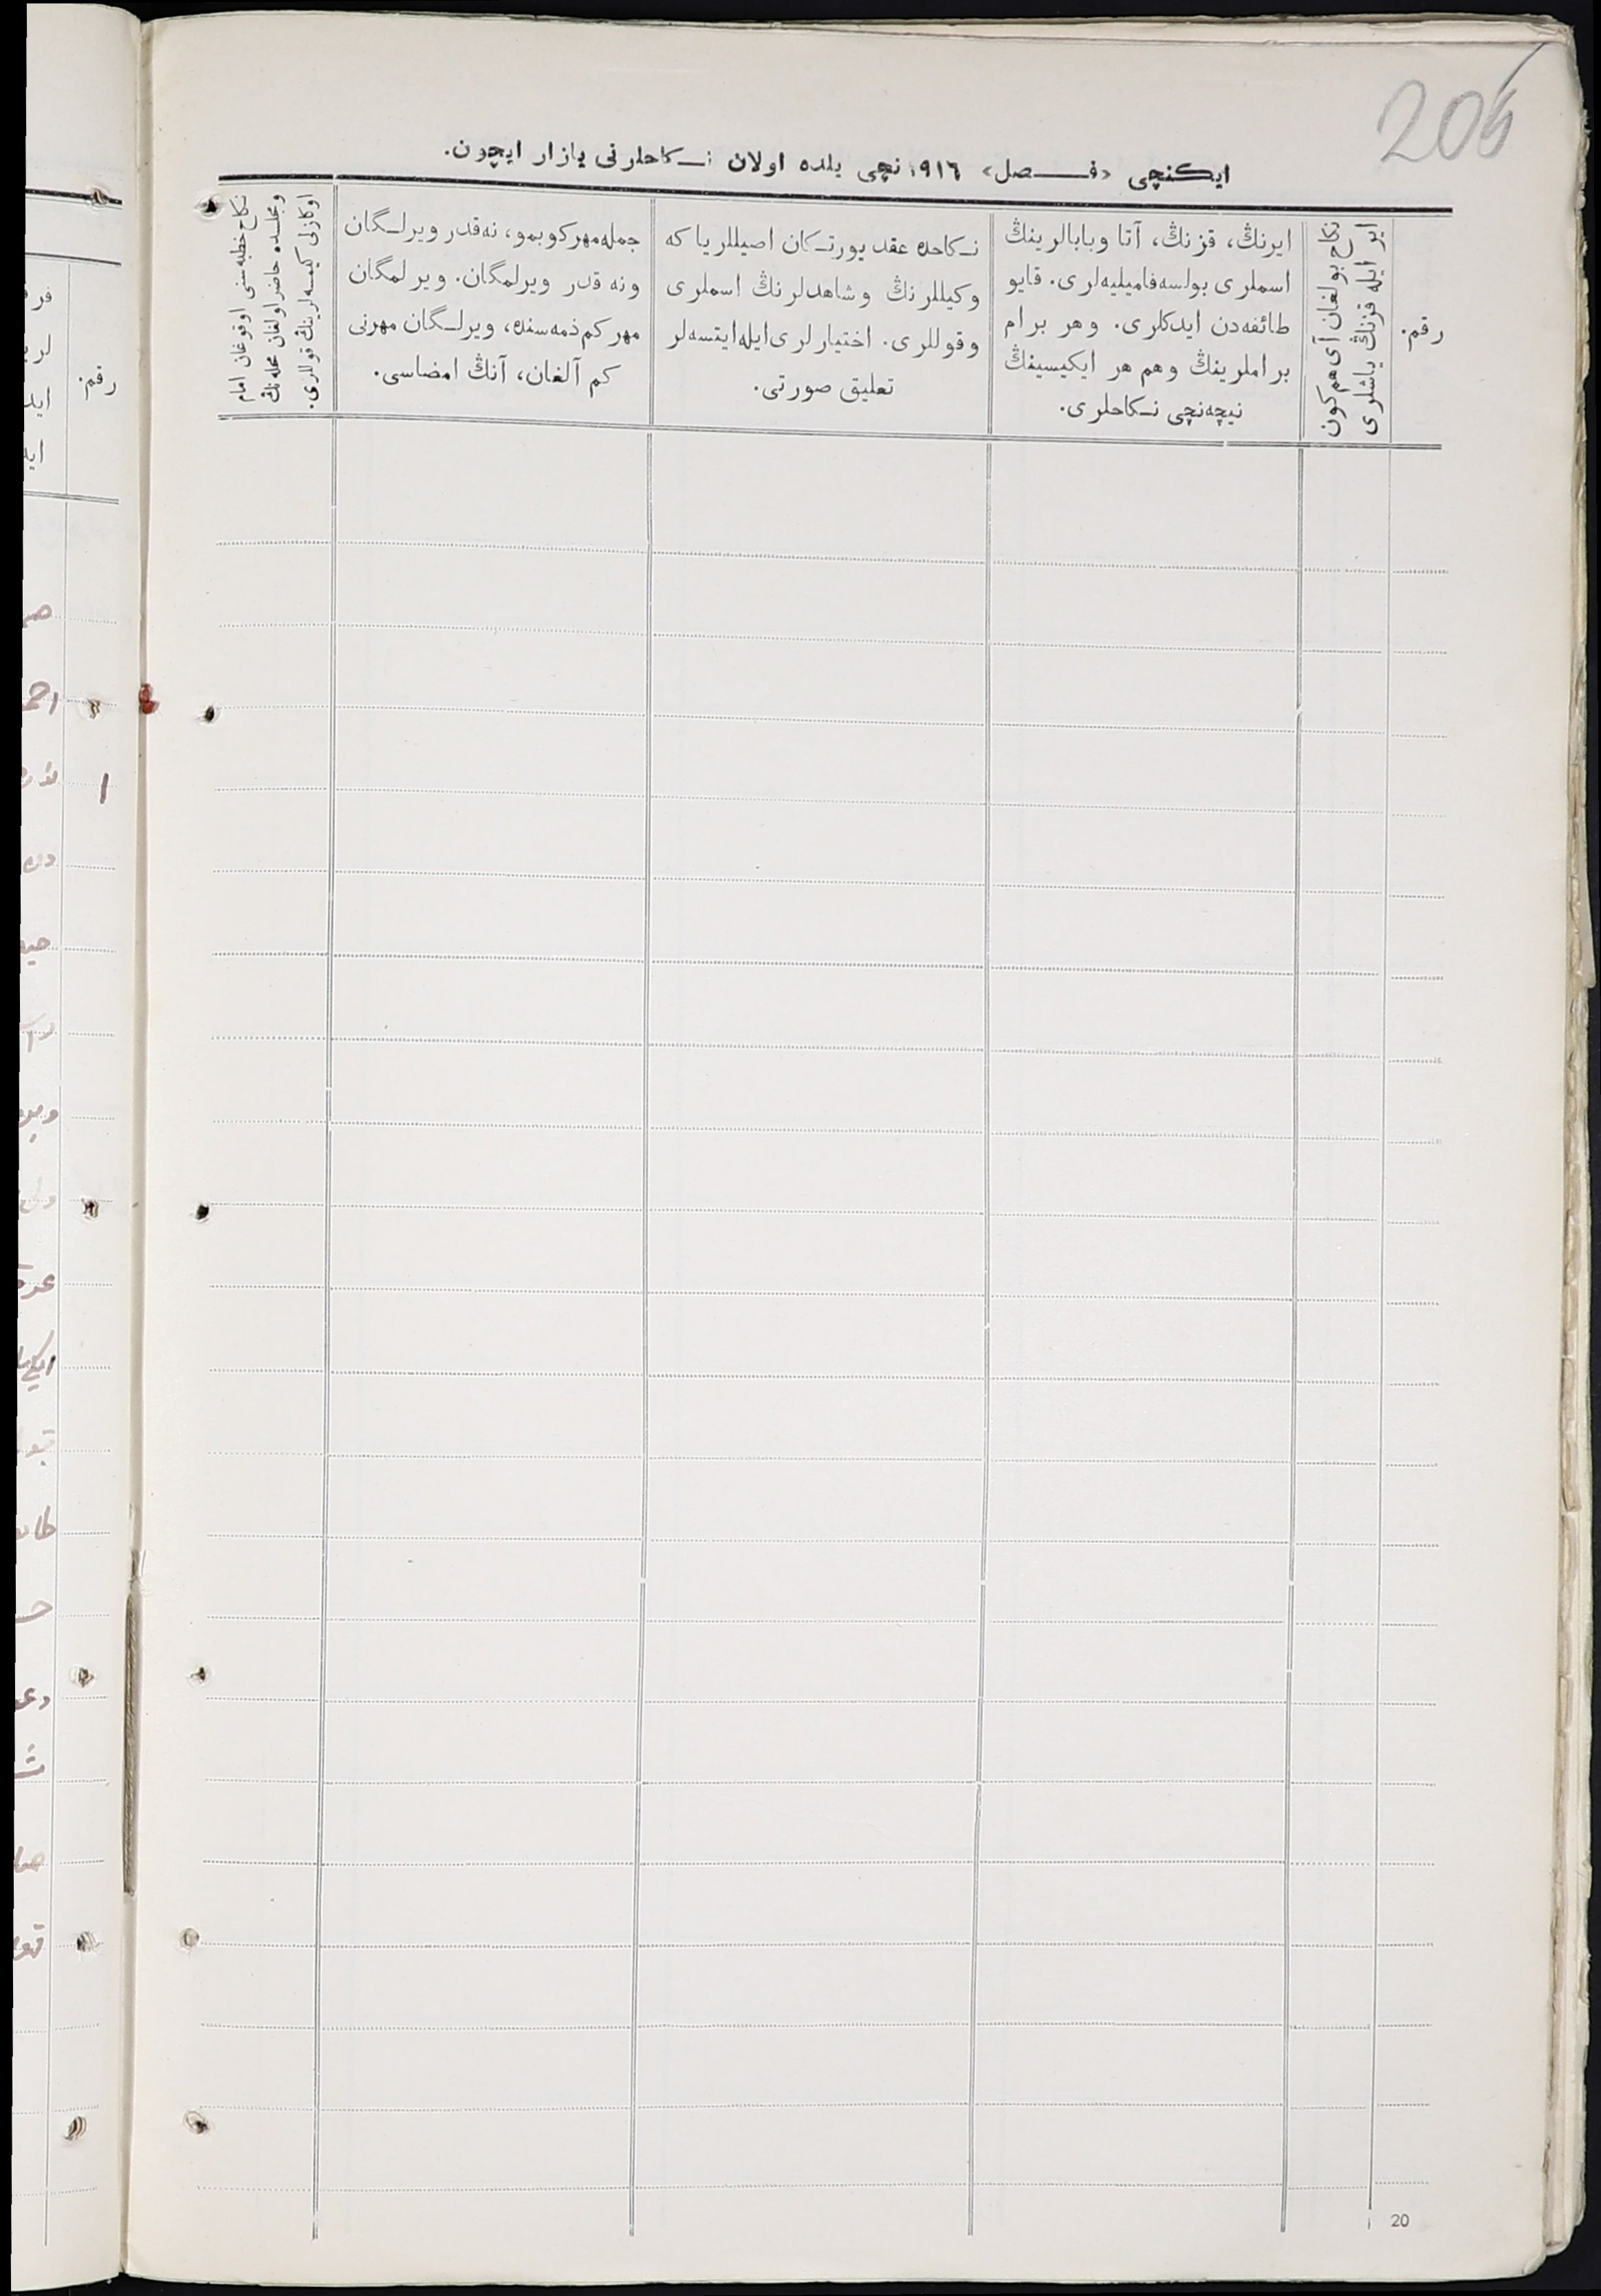 206
ایکنچی «فصل» ۱۹۱٦نچی یلده اولان نکاحلرنی یازار ایچون.
رقم.
نکاح بولغان آی هم کون
ایر ایله قزنڭ یاشلری
ایرنڭ، قزنڭ، آتا وبابالرینڭ
اسملری بولسه فامیلیه‌لری. قایو
طائفه‌دن ایدکلری. وهر برام
براملرینڭ وهم هر ایکیسینڭ
نیچه‌نچی نکاحلری.
نکاحده عقد یورتکان اصیللریا که
وکیللرنڭ وشاهدلرنڭ اسملری
وقوللری. اختیارلری ایله ایتسه‌لر
تعلیق صورتی.
جمله مهر کوبمو، نه قدر ویرلگان
ونه قدر ویرلمگان. ویرلمگان
مهر کم ذمه سنده، ویرلگان مهرنی
کم آلغان، آنڭ امضاسی.
نکاح خطبه سنی اوقوغان امام
ومجلسده حاضر اولغان محله نڭ
اوکازنی کیمسه لرینڭ قوللری.
رقم.
۱
20